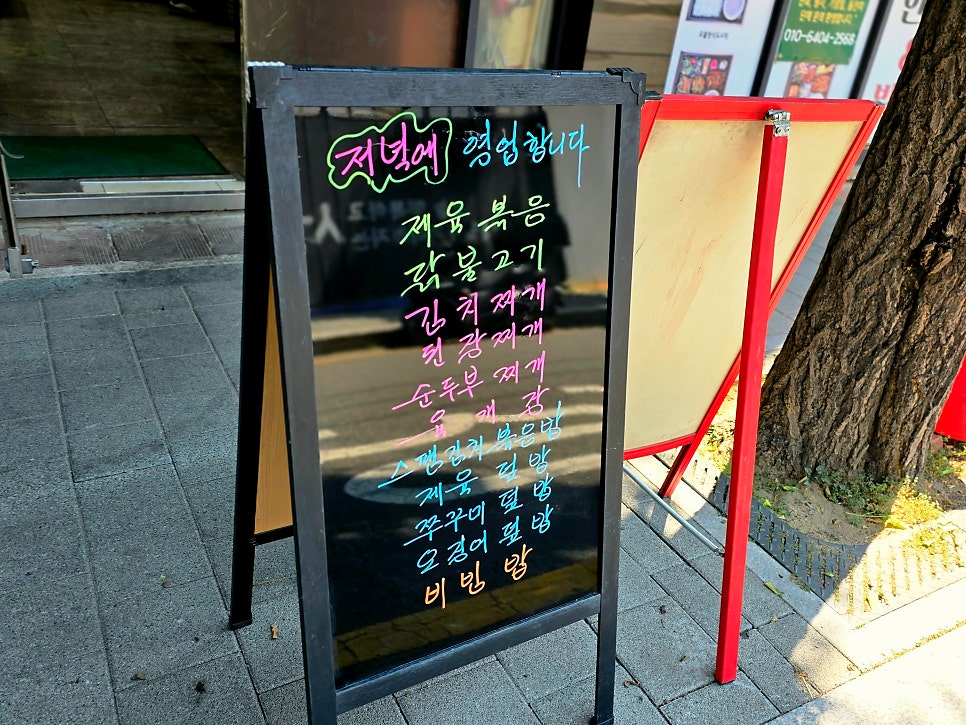 저녁에 영업합니다
제육 볶음
닭 불고기
김치찌개
된장찌개
순두부 찌개
육 개 장
스팸김치볶음밥
제육 덮밥
쭈꾸미 덮밥
오징어 덮밥
비빔 밥
단체 문의 환영합니다.
010-6404-2568